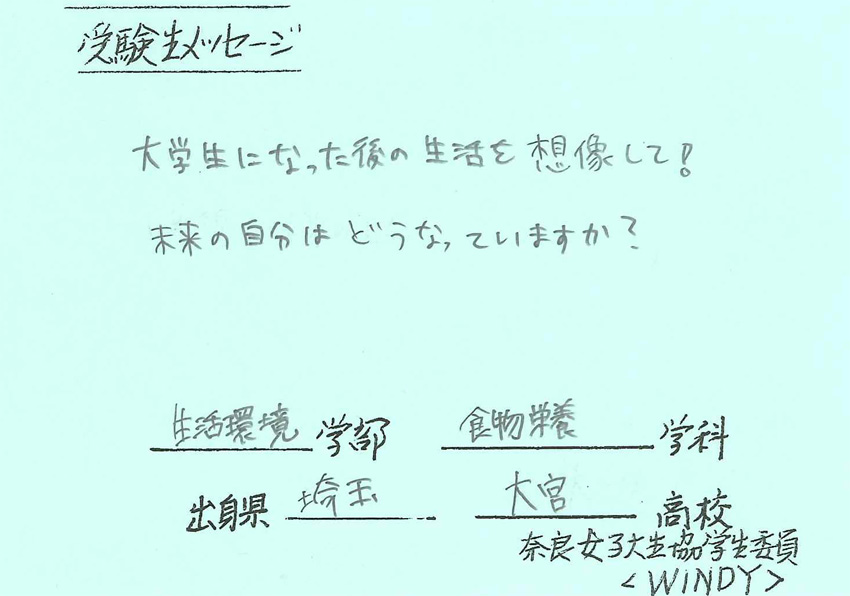 受験生メッセージ
大学生になった後の生活を想像して!
未来の自分はどうなっていますか?
生活環境学部 食物栄養学科
出身県 埼玉 大宮高校
奈良女子大生協学生委員
<WINDY>